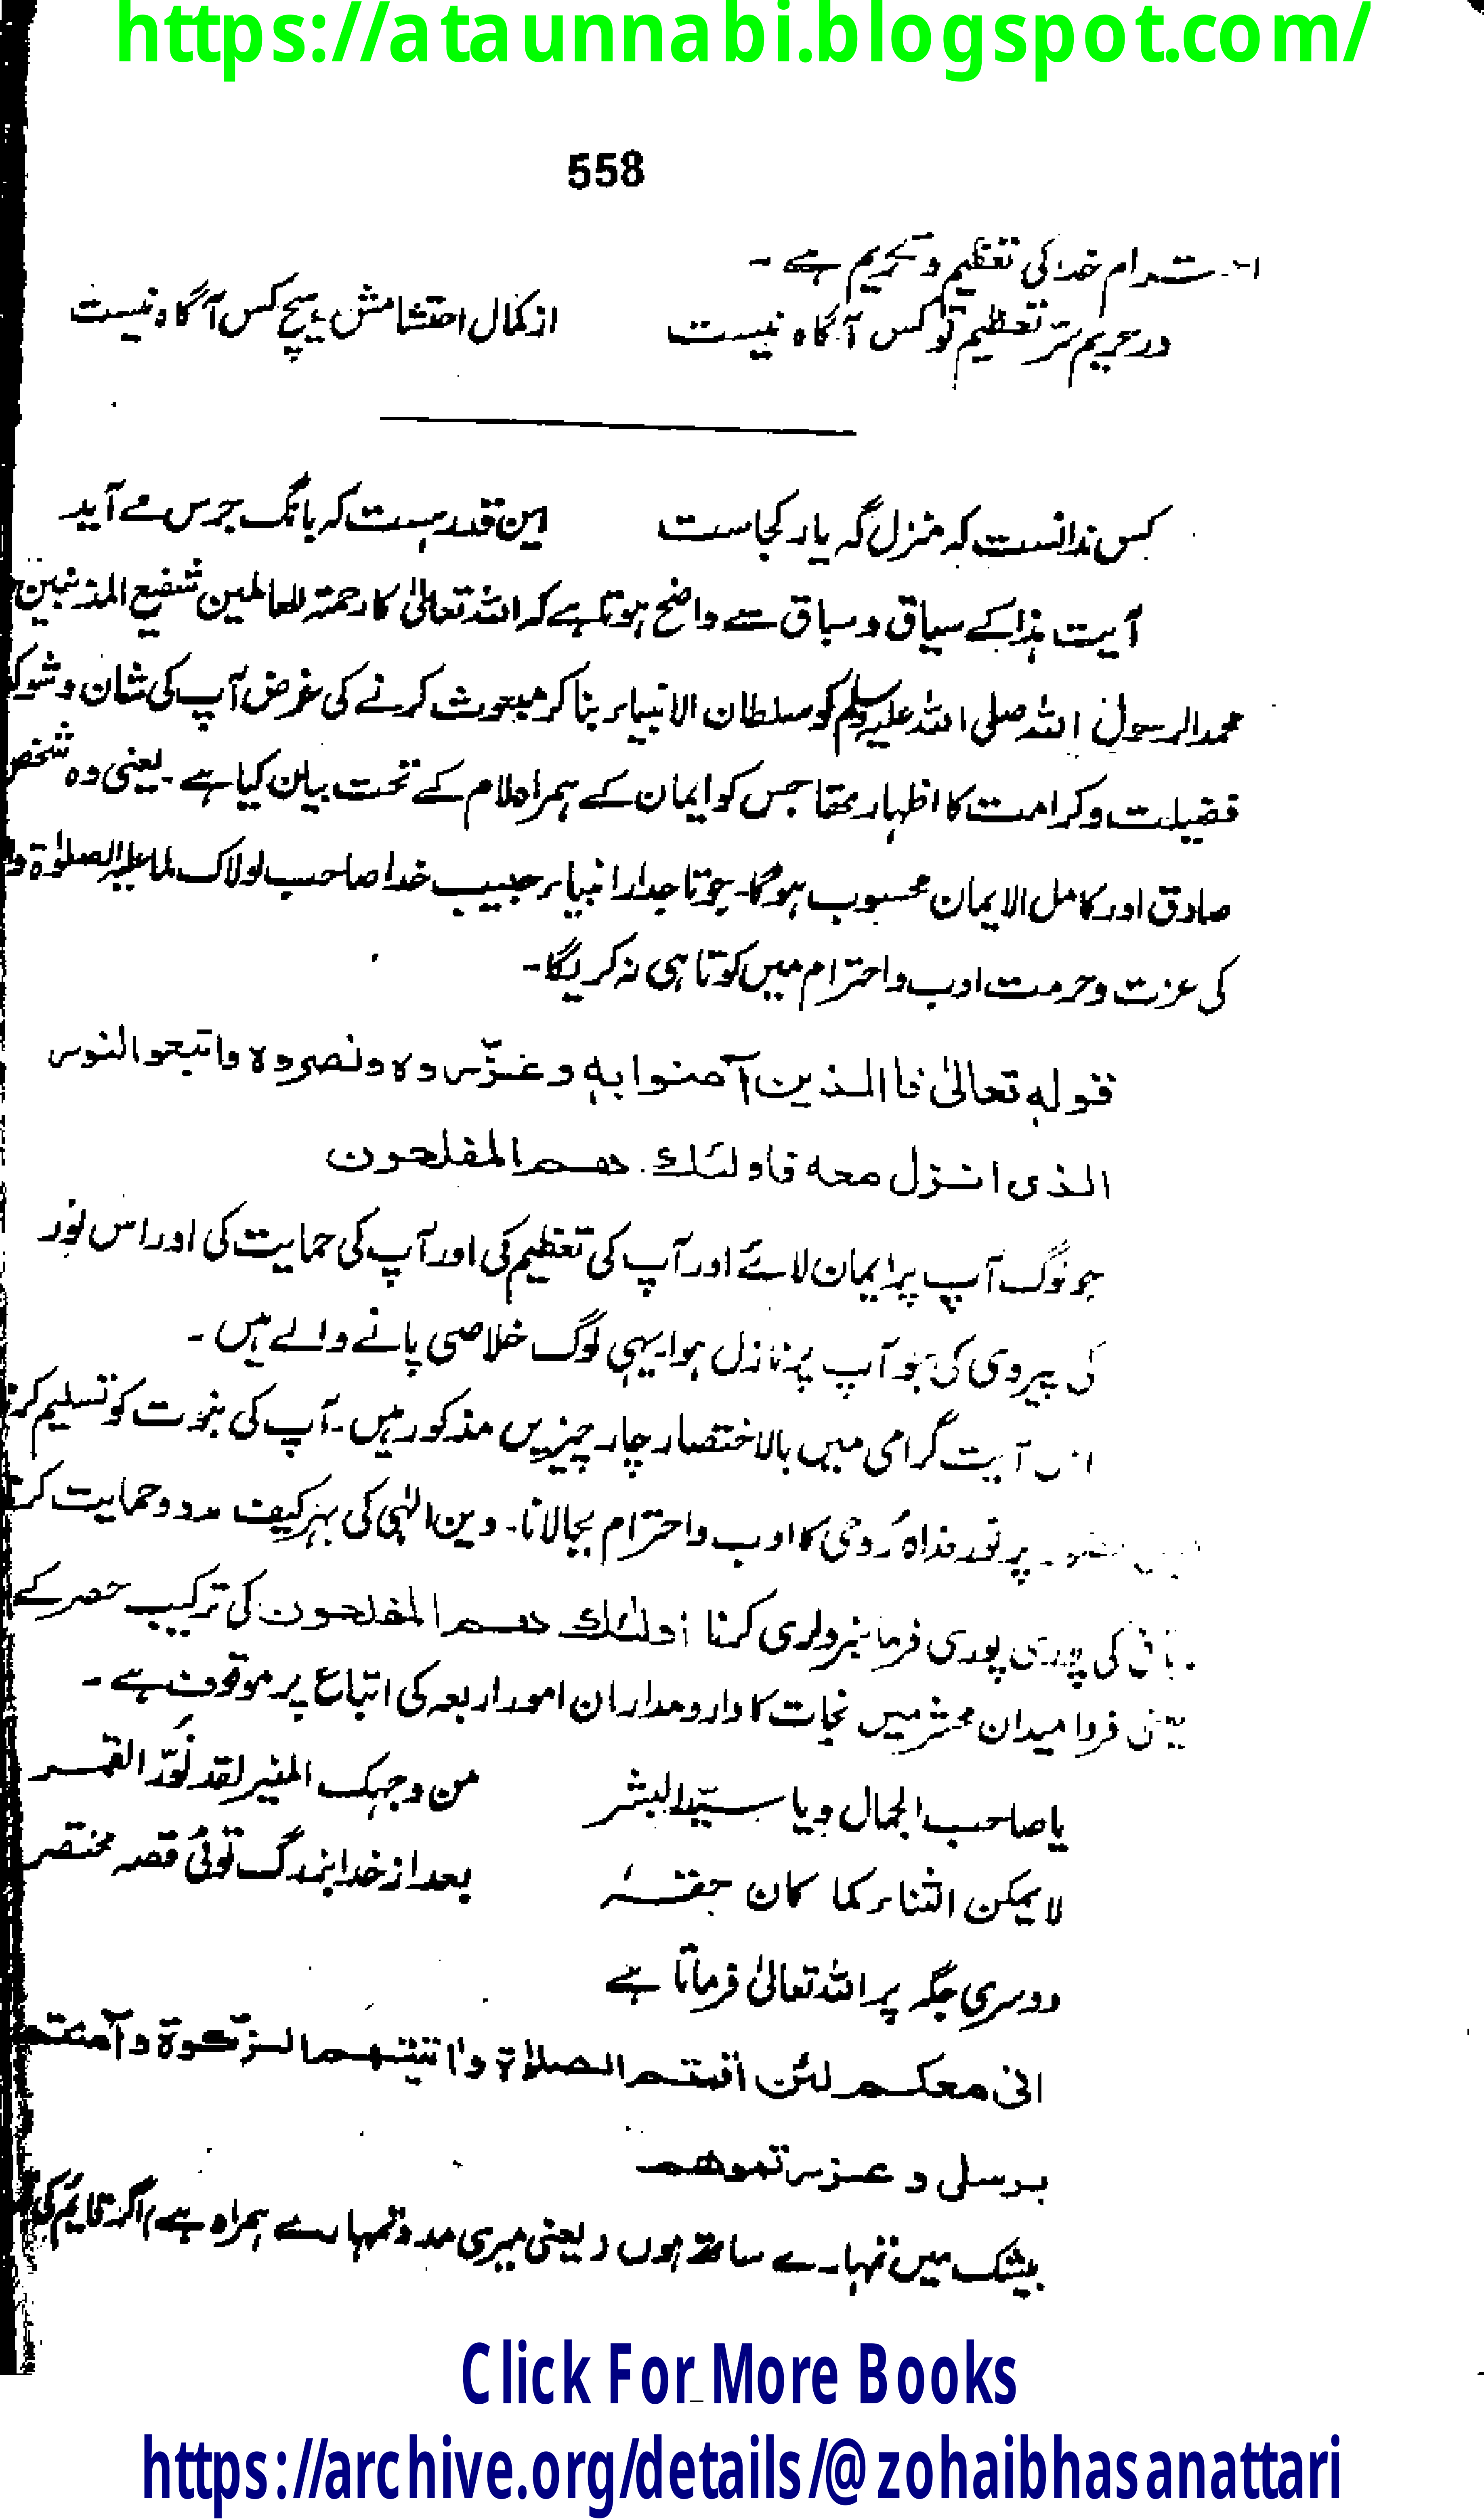 https://ataunnabi.blogspot.com/
558
احترام خدا کی تعظیم و تحریم ہے ۔
در حریم ستر تعظیم تو کس آگاہ نیست از کمال احتشامش ہیچ کس آگاہ نیست
کس ندانست کہ منزل گہ یار کجاست این قدر ہست کہ بانگ جرس مے آید
آیت ہذا کے سیاق و سباق سے واضح ہوتا ہے کہ اللہ تعالیٰ کا رحمۃ للعالمین شفیع المذنبین
محمد الرسول اللہ صلی اللہ علیہ وسلم کو سلطان الانبیاء بنا کر مبعوث کرنے کی غرض آپ کی شان و
فضیلت و کرامت کا اظہار تھا جس کو ایمان کے ہمراہ لام کے تحت بیان کیا ہے ۔ یعنی وہ شخص
صادق اور کامل الایمان محسوب ہوگا۔ جو تاجدار انبیاء حبیب خدا صاحب لولاک لما علیہ الصلوٰۃ
کی عزت و حرمت ادب و احترام میں کوتاہی نہ کریگا۔
قولہ تعالیٰ فاالذین آمنوا بہ و عزّروہ و نصروہ واتبعوالنور
الذی انزل معہ فاولئک ھم المفلحون
جو لوگ آپ پر ایمان لائے اور آپ کی تعظیم کی اور آپ کی حمایت کی اور اس نور
کی پیروی کی جو آپ پر نازل ہوا یہی لوگ خلاصی پانے والے ہیں ۔
اس آیت گرامی میں بالاختصار چار چیزیں مذکور ہیں۔ آپ کی نبوت کو تسلیم
پر نور فداہ رُوحی کا ادب و احترام بجالانا۔ دین الٰہی کی بہر کیف مدد و حمایت
کی پوری پوری فرمانبرداری کرنا اولئک ھم المفلحون کی ترکیب حصر کے
یعنی فردا میدان محشر میں نجات کا دارومدار ان امور اربعہ کی اتباع پر موقوف ہے ۔
یا صاحب الجمال و یا سیّد البشر من وجہک المنیر لقد نُوّر القمر
لا یمکن الثناء کما کان حقہٗ بعد از خدا بزرگ توئی قصہ مختصر
دوسری جگہ پر اللہ تعالیٰ فرماتا ہے
انی معکم لئن اقمتم الصلوٰۃ و اتیتھم الزکوۃ و آمنتم
برسلی و عزرتموھم
بیشک میں تمہارے ساتھ ہوں (یعنی میری مدد تمہارے ہمراہ ہے) اگر قائم کی
Click For More Books
https://archive.org/details/@zohaibhasanattari